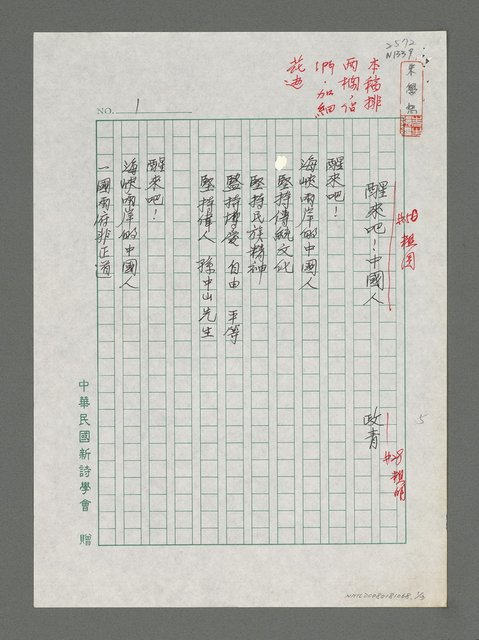 2572
N1339
本稿排
兩欄，佔
NO. 1
醒來吧！中國人
政青
醒來吧！
海峽兩岸的中國人
堅持傳統文化
堅持民族精神
堅持博愛 自由 平等
堅持偉人 孫中山先生
醒來吧！
海峽兩岸的中國人
一國兩府非正道
5
中華民國新詩學會 贈